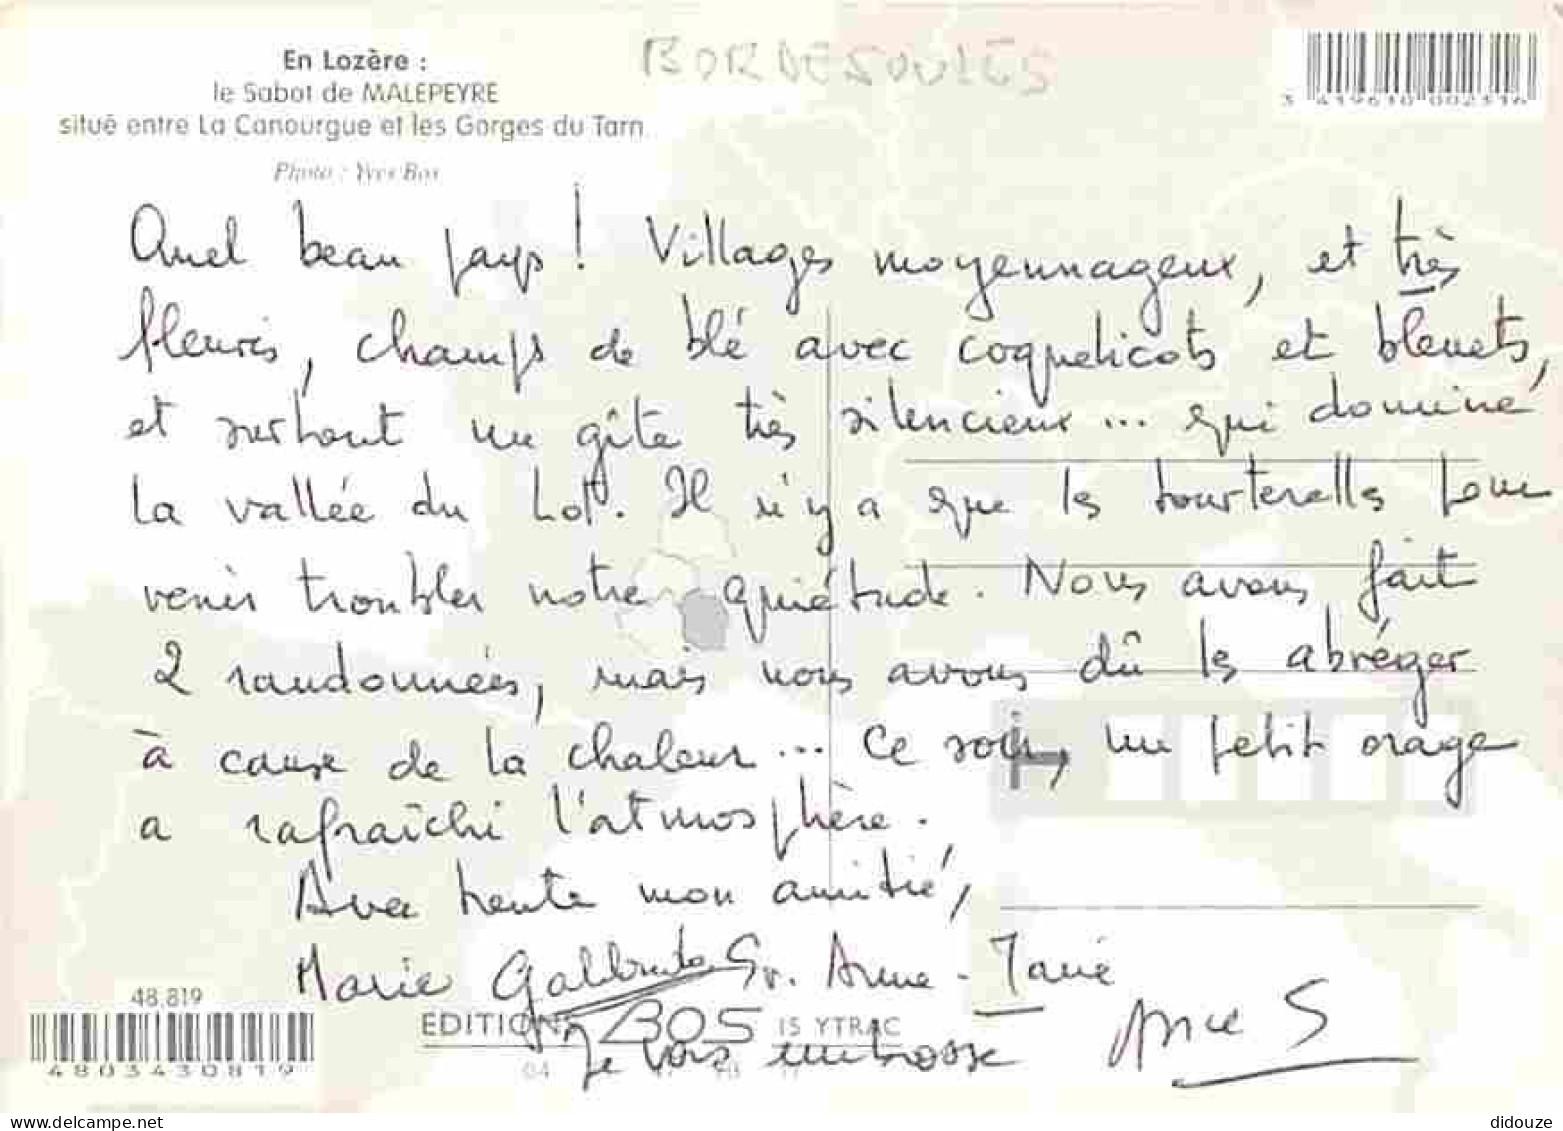 En Lozère :
le Sabot de MALEPEYRE
situé entre La Canourgue et les Gorges du Tarn
Photo : Yves Bos
BORDESOULES
3 419610 002316
Quel beau pays ! Villages moyennageux, et très
fleuris, champs de blé avec coquelicots et bleuets,
et surtout un gîte très silencieux ... qui domine
la vallée du Lot. Il n'y a que les tourterelles pour
venir troubler notre quiétude. Nous avons fait
2 randonnées, mais nous avons dû les abréger
à cause de la chaleur ... Ce soir, un petit orage
a rafraîchi l'atmosphère.
Avec toute mon amitié,
Marie Sr. Anne-Marie
48.819
EDITIONS BOS 15 YTRAC
Je vous embrasse
4803430819
didouze